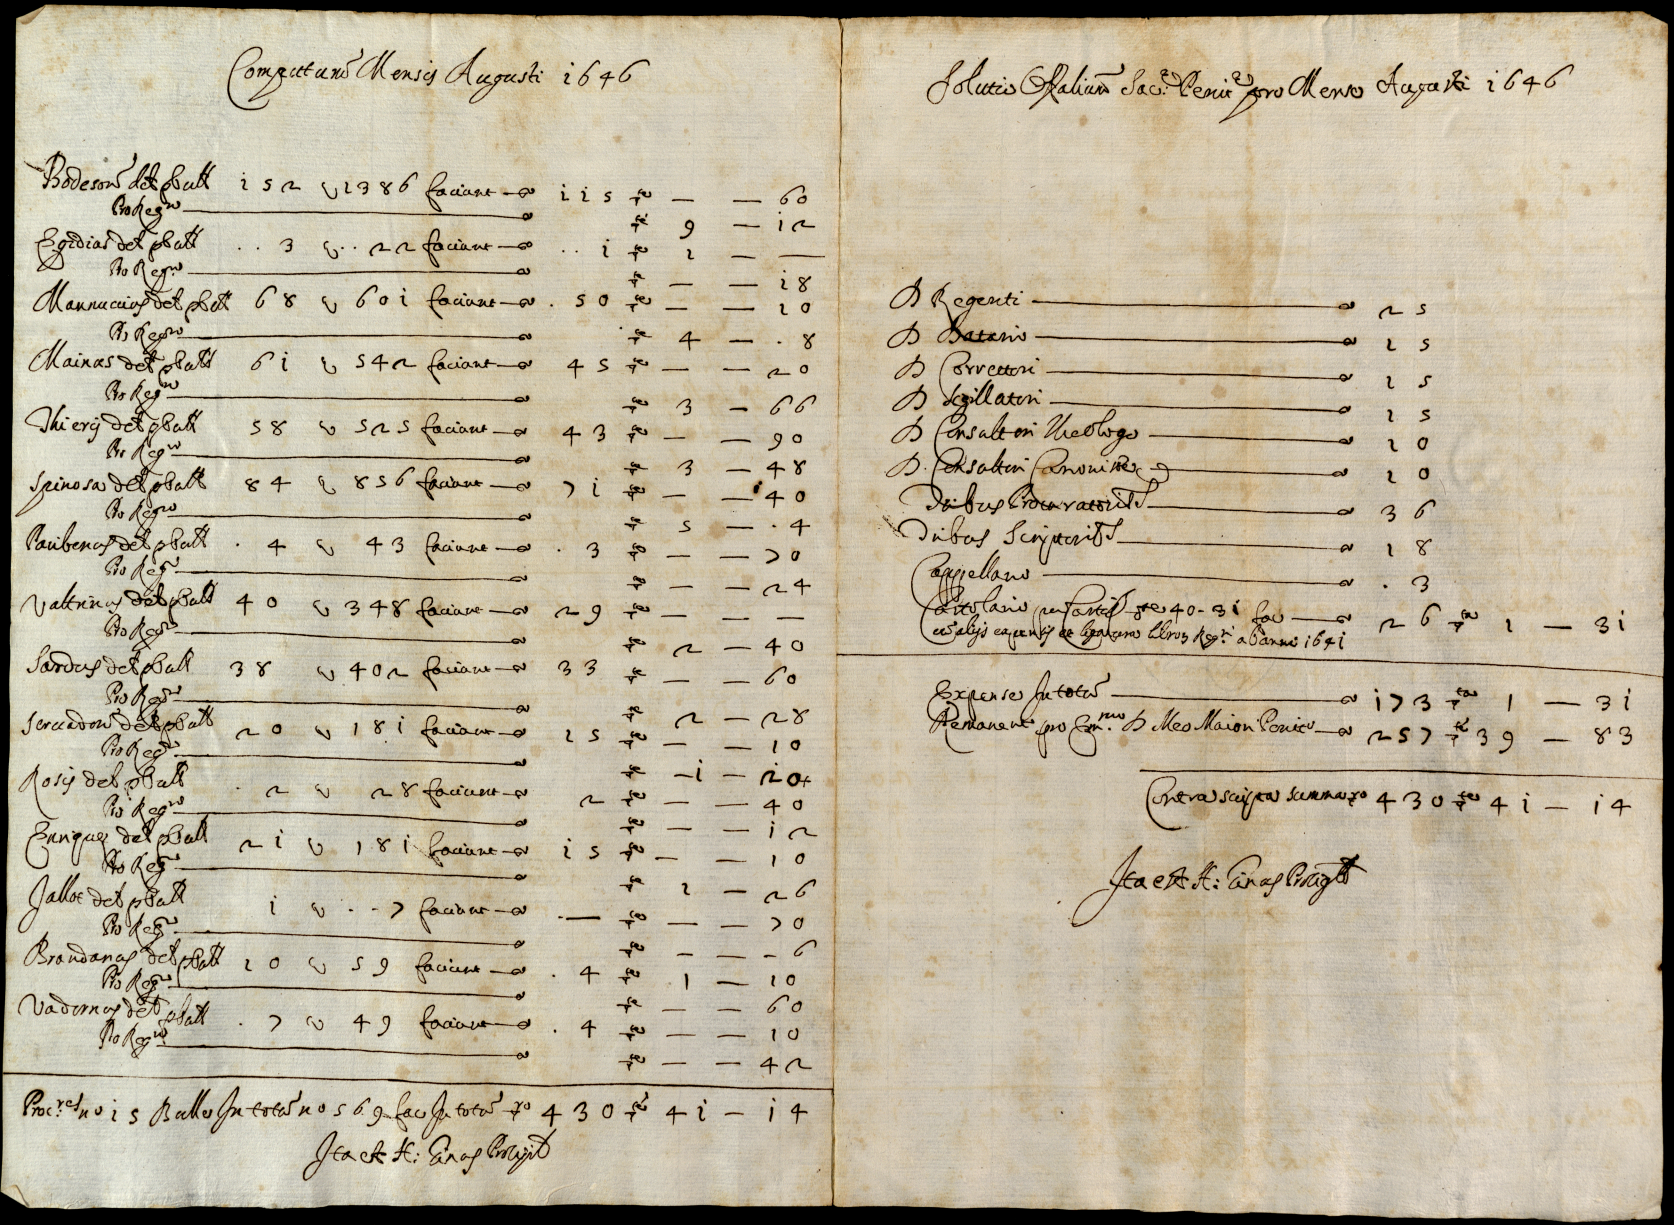 Computus Mensis Augusti 1646
Bodeson det sbatt 152 v 1386 faciunt — 115 — — 60
Pro Reg.ro — 9 — 12
Egidius det sbatt .. 3 v .. 22 faciunt — .. 1 1 — —
Pro Reg.ro — — — 18
Mannucius det sbatt 68 v 601 faciunt — . 50 — — 10
Pro Reg.ro — 4 — . 8
Mainas det sbatt 61 v 542 faciunt — 45 — — 20
Pro Reg.ro — 3 — 66
Thierij det sbatt 58 v 525 faciunt — 43 — — 90
Pro Reg.ro — 3 — 48
Spinosa det sbatt 84 v 856 faciunt — 71 — — 40
Pro Reg.ro — 5 — . 4
det sbatt . 4 v 43 faciunt — . 3 — — 70
Pro Reg.ro — — — 24
Valtrinus det sbatt 40 v 348 faciunt — 29 — — —
Pro Reg.ro — 2 — 40
Sardus det sbatt 38 v 402 faciunt — 33 — — 60
Pro Reg.ro — 2 — 28
det sbatt 20 v 181 faciunt — 15 — — 10
Pro Reg.ro — 1 — 20
Rosis det sbatt . 2 v 28 faciunt — 2 — — 40
Pro Reg.ro — — — 12
Enriquez det sbatt 21 v 181 faciunt — 15 — — 10
Pro Reg.ro — 1 — 26
Jallot det sbatt 1 v .. 7 faciunt — . — — — 70
Pro Reg.ro — — — 6
Brandanus det sbatt 10 v 59 faciunt — . 4 1 — 10
Pro Reg.ro — — — 60
det sbatt . 7 v 49 faciunt — . 4 — — 10
Pro Reg.ro — — — 42
Proc.res no 15 Bulle In totu no 569 fac In totu 430 41 — 14
Ita est H:
Solutio Offalium Sac. Penit. pro Mense Augusti 1646
D Regenti — 25
D Datario — 15
D Correttori — 15
D Sigillatori — 15
D Consultori Theologo — 10
D. Consultori Canonistæ — 10
Duibus Procuratoribs — 36
Duibus Scriptoribs — 18
Cappellano — . 3
Cartolario 40-31 fac — 26 1 — 31
librorum Reg.ri ab anno 1641
Expense In totu — 173 1 — 31
Remanent pro Em.mo D Meo Maiori Penit.o — 257 39 — 83
Contra scripta summa 430 41 — 14
Ita est H: